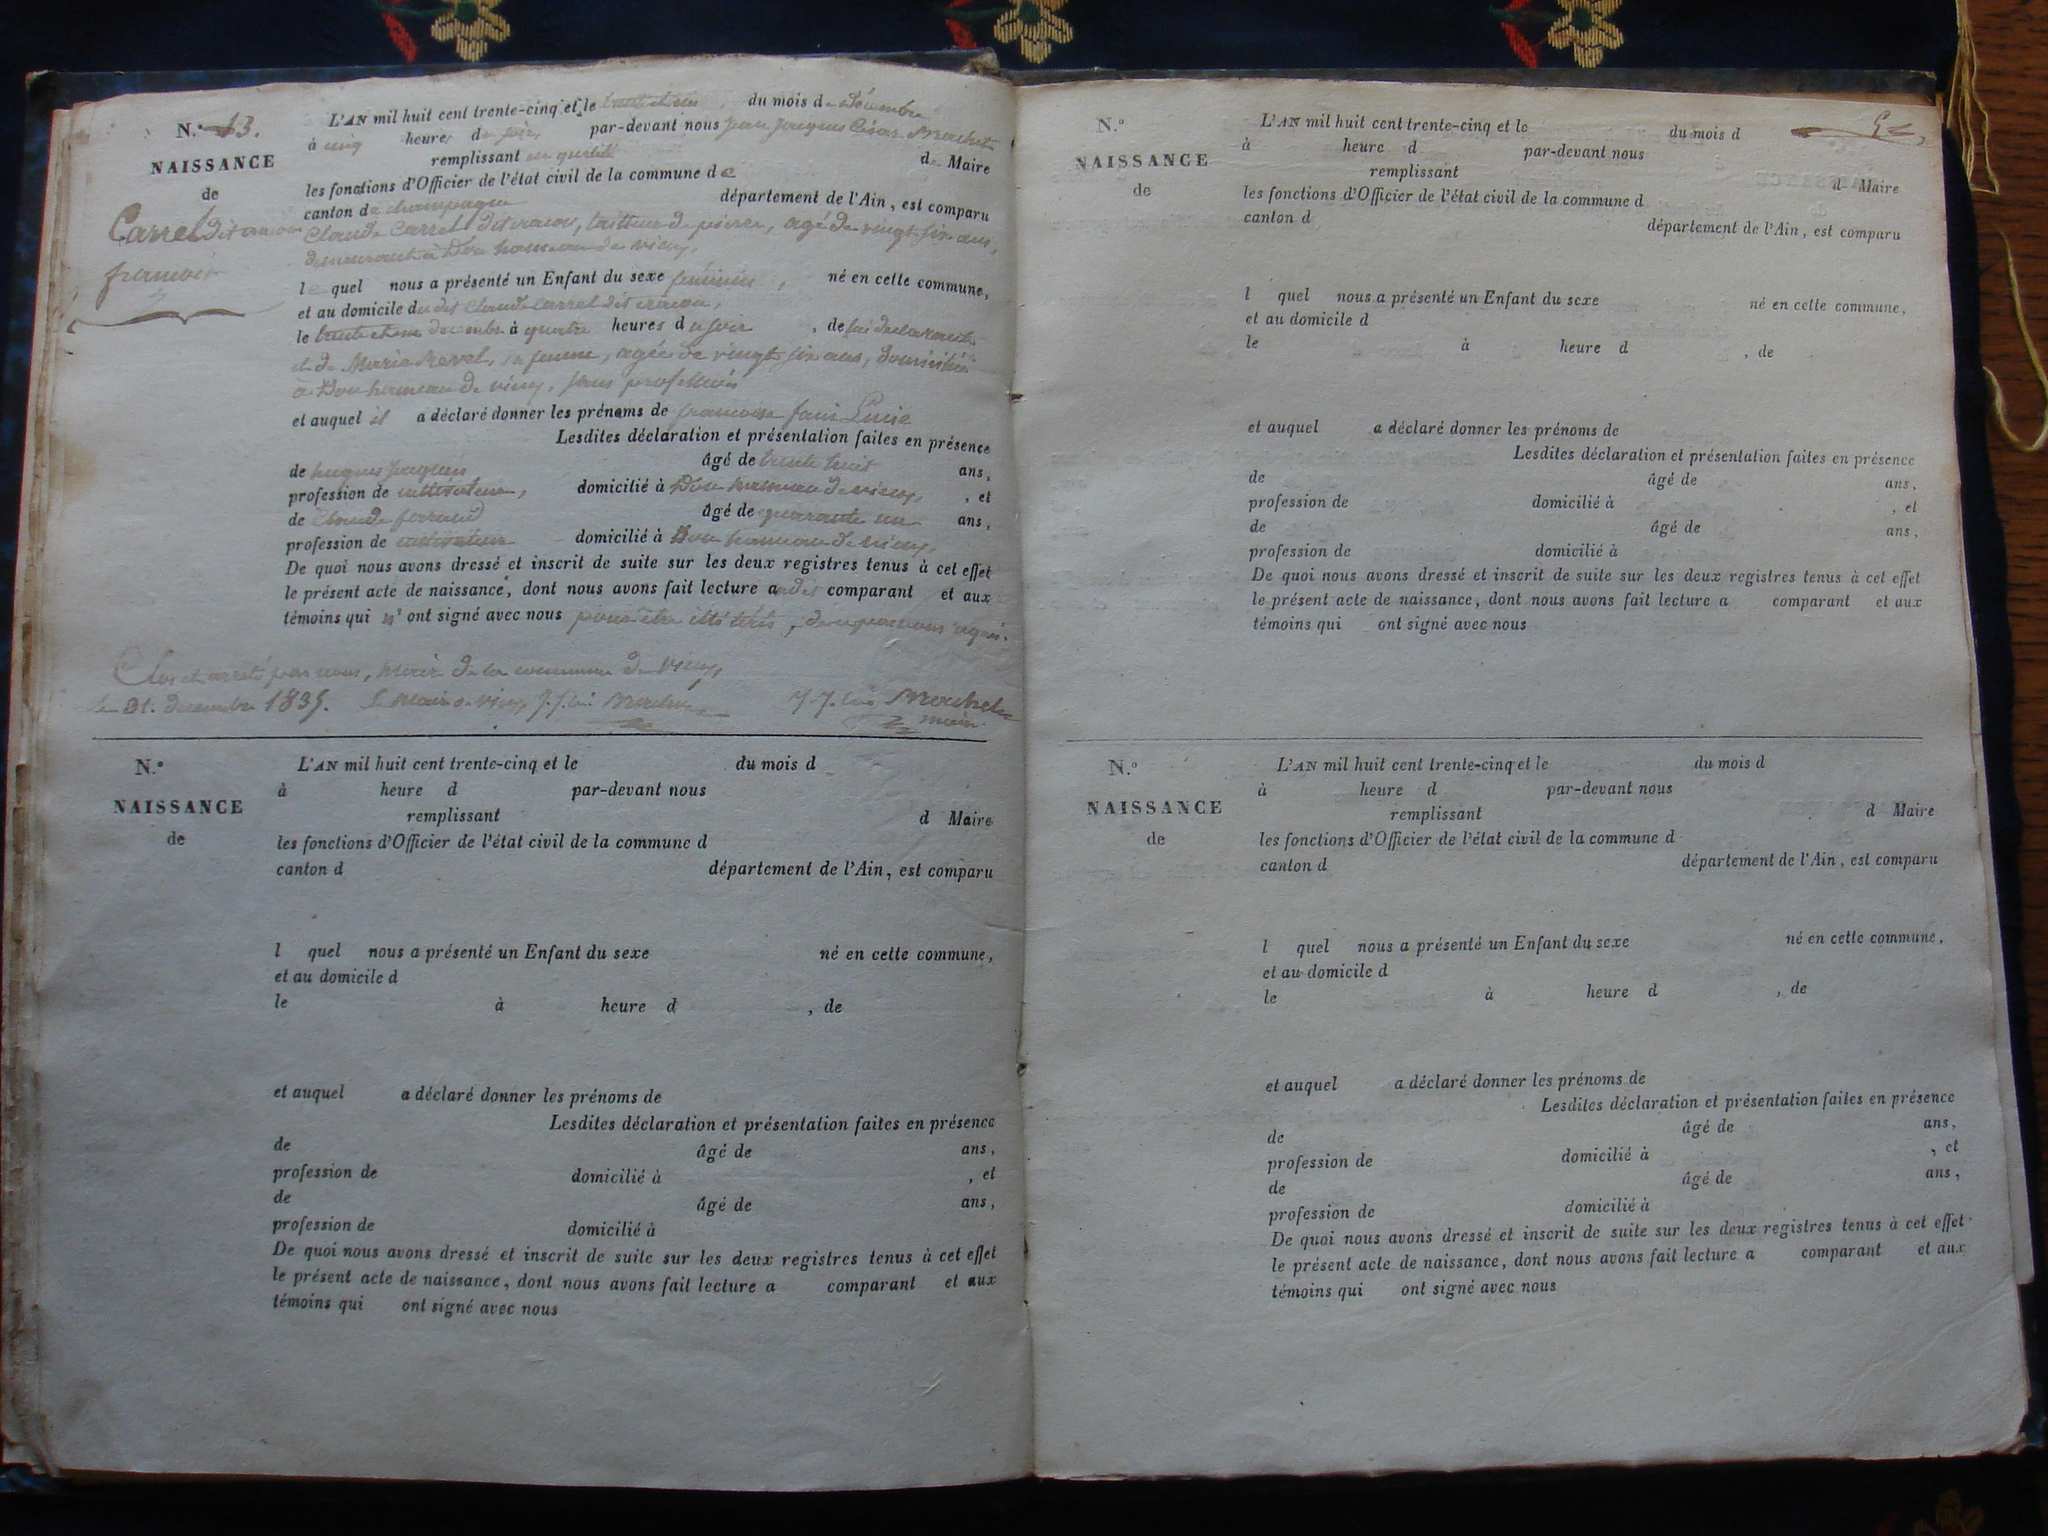 N.º 13.
NAISSANCE
de
Carrel dit
françoise
L'AN mil huit cent trente-cinq et le trente et un du mois de décembre
à cinq heures du soir, par-devant nous jean jacques César Brochet
remplissant en qualité de Maire
les fonctions d'Officier de l'état civil de la commune de
canton de champagne département de l'Ain, est comparu
Claude Carrel dit tailleur de pierre, agé de vingt six ans,
demeurant à hameau de vieu,
lequel nous a présenté un Enfant du sexe féminin, né en cette commune,
et au domicile du dit Claude Carrel dit
le trente et un decembre à quatre heures du soir, de lui déclarant
et de Marie Revel, sa femme, agée de vingt six ans, domiciliée
à Don hameau de vieu, sans profession
et auquel il a déclaré donner les prénoms de françoise Lucie
Lesdites déclaration et présentation faites en présence
de hugues âgé de trente huit ans,
profession de cultivateur, domicilié à Don hameau de vieu, et
de Claude âgé de quarante un ans,
profession de cultivateur domicilié à Don hameau de vieu,
De quoi nous avons dressé et inscrit de suite sur les deux registres tenus à cet effet
le présent acte de naissance, dont nous avons fait lecture au dit comparant et aux
témoins qui n'ont signé avec nous pour être illétérés,
Clos et arreté par nous, maire de la commune de vieu,
le 31. decembre 1835. Le maire de vieu J. J. Brochet J. J. Brochet
maire
N.º
NAISSANCE
de
L'AN mil huit cent trente-cinq et le du mois d
à heure d par-devant nous
remplissant d Maire
les fonctions d'Officier de l'état civil de la commune d
canton d département de l'Ain, est comparu
l quel nous a présenté un Enfant du sexe né en cette commune,
et au domicile d
le à heure d , de
et auquel a déclaré donner les prénoms de
Lesdites déclaration et présentation faites en présence
de âgé de ans,
profession de domicilié à , et
de âgé de ans,
profession de domicilié à
De quoi nous avons dressé et inscrit de suite sur les deux registres tenus à cet effet
le présent acte de naissance, dont nous avons fait lecture a comparant et aux
témoins qui ont signé avec nous
N.º
NAISSANCE
de
L'AN mil huit cent trente-cinq et le du mois d
à heure d par-devant nous
remplissant d Maire
les fonctions d'Officier de l'état civil de la commune d
canton d département de l'Ain, est comparu
l quel nous a présenté un Enfant du sexe né en cette commune,
et au domicile d
le à heure d , de
et auquel a déclaré donner les prénoms de
Lesdites déclaration et présentation faites en présence
de âgé de ans,
profession de domicilié à , et
de âgé de ans,
profession de domicilié à
De quoi nous avons dressé et inscrit de suite sur les deux registres tenus à cet effet
le présent acte de naissance, dont nous avons fait lecture a comparant et aux
témoins qui ont signé avec nous
N.º
NAISSANCE
de
L'AN mil huit cent trente-cinq et le du mois d
à heure d par-devant nous
remplissant d Maire
les fonctions d'Officier de l'état civil de la commune d
canton d département de l'Ain, est comparu
l quel nous a présenté un Enfant du sexe né en cette commune,
et au domicile d
le à heure d , de
et auquel a déclaré donner les prénoms de
Lesdites déclaration et présentation faites en présence
de âgé de ans,
profession de domicilié à , et
de âgé de ans,
profession de domicilié à
De quoi nous avons dressé et inscrit de suite sur les deux registres tenus à cet effet
le présent acte de naissance, dont nous avons fait lecture a comparant et aux
témoins qui ont signé avec nous